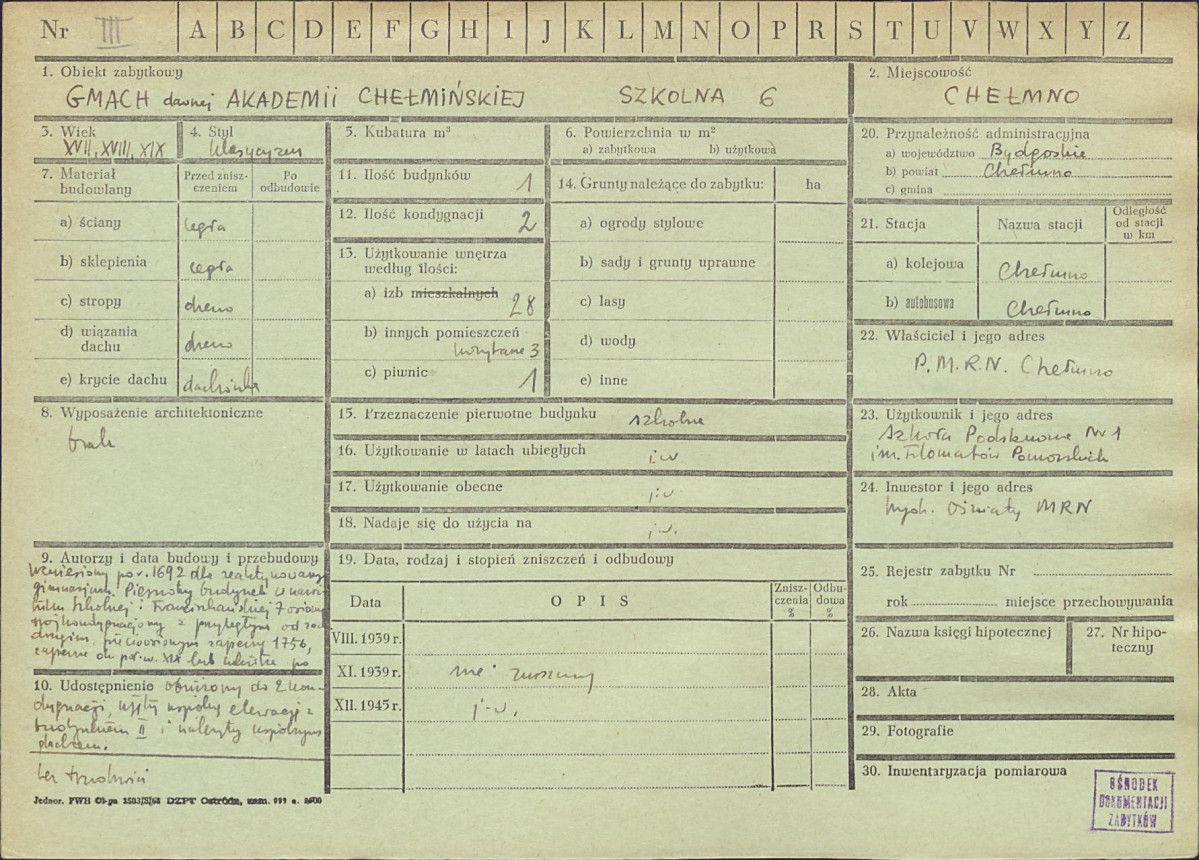 Nr III A B C D E F G H I J K L M N O P R S T U V W X Y Z
1. Obiekt zabytkowy
GMACH dawnej AKADEMII CHEŁMIŃSKIEJ SZKOLNA 6
2. Miejscowość
CHEŁMNO
3. Wiek
XVII, XVIII, XIX
4. Styl
klasycyzm
5. Kubatura m³
6. Powierzchnia w m²
a) zabytkowa b) użytkowa
7. Materiał budowlany
Przed zniszczeniem
Po odbudowie
a) ściany cegła
b) sklepienia cegła
c) stropy drewno
d) wiązania dachu drewno
e) krycie dachu dachówka
8. Wyposażenie architektoniczne
brak
9. Autorzy i data budowy i przebudowy
Wzniesiony po r. 1692 dla reaktywowanego
gimnazjum. Pierwotny budynek u
Szkolnej i Franciszkańskiej 7 osiowy
z przyległym od
drugim, zapewne 1756,
zapewne ok. poł. w. XIX lub
10. Udostępnienie obniżony do 2 kon-
dygnacji, ujęty wspólną elewacją z
budynkiem II i nakryty wspólnym
dachem.
bez trudności
Jednor. PWH Ol-ga 2503/S/68 DZPT Ostróda, zam. 999 n. 2600
11. Ilość budynków 1
12. Ilość kondygnacji 2
13. Użytkowanie wnętrza
według ilości:
a) izb mieszkalnych 28
b) innych pomieszczeń
3
c) piwnic 1
14. Grunty należące do zabytku: ha
a) ogrody stylowe
b) sady i grunty uprawne
c) lasy
d) wody
e) inne
15. Przeznaczenie pierwotne budynku szkolne
16. Użytkowanie w latach ubiegłych j.w
17. Użytkowanie obecne j.w
18. Nadaje się do użycia na j.w.
19. Data, rodzaj i stopień zniszczeń i odbudowy
Data
OPIS
Zniszczenia %
Odbudowa %
VIII. 1939 r.
XI. 1939 r. nie zniszczony
XII. 1945 r. j.w.
20. Przynależność administracyjna
a) województwo Bydgoskie
b) powiat Chełmno
c) gmina
21. Stacja
Nazwa stacji
Odległość od stacji w km
a) kolejowa Chełmno
b) autobusowa Chełmno
22. Właściciel i jego adres
P.M.R.N. Chełmno
23. Użytkownik i jego adres
Szkoła Podstawowa Nr 1
im. Filomatów Pomorskich
24. Inwestor i jego adres
Wydz. Oświaty MRN
25. Rejestr zabytku Nr
rok miejsce przechowywania
26. Nazwa księgi hipotecznej
27. Nr hipoteczny
28. Akta
29. Fotografie
30. Inwentaryzacja pomiarowa
OŚRODEK
DOKUMENTACJI
ZABYTKÓW